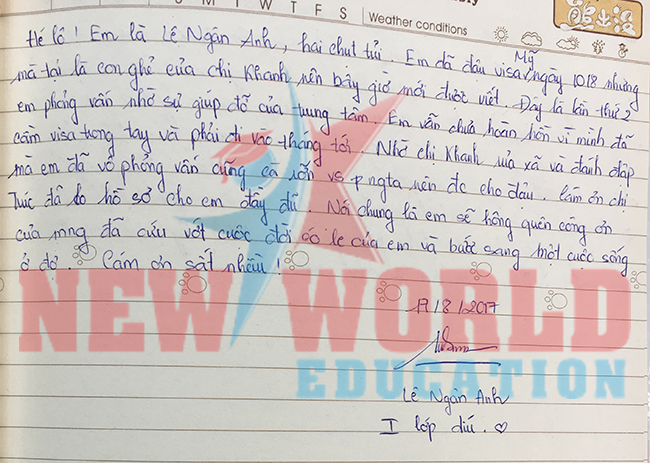 S M T W T F S Weather conditions
Hé lô ! Em là Lê Ngân Anh, hai chut tủi. Em đã đâu visa Mỹ ngày 10/8 nhưng
mà tại là con ghẻ của chị Khanh nên bây giờ mới được viết. Đây là lần thứ 2
em phỏng vấn nhờ sự giúp đỡ của trung tâm. Em vẫn chưa hoàn hồn vì mình đã
cầm visa trong tay và phải đi vào tháng tới. Nhờ chị Khanh rủa xã và đánh đập
mà em đã vô phỏng vấn cũng cà rỡn vs p ngta nên đc cho đâu. Cám ơn chị
Trúc đã lo hồ sơ cho em đầy đủ. Nói chung là em sẽ hông quên công ơn
của mng đã cứu vớt cuộc đời có le của em và bước sang một cuộc sống
ở đợ. Cám ơn sất nhều !
NEW WORLD
EDUCATION
17/8/2017
Lê Ngân Anh
I lớp diú. ♡